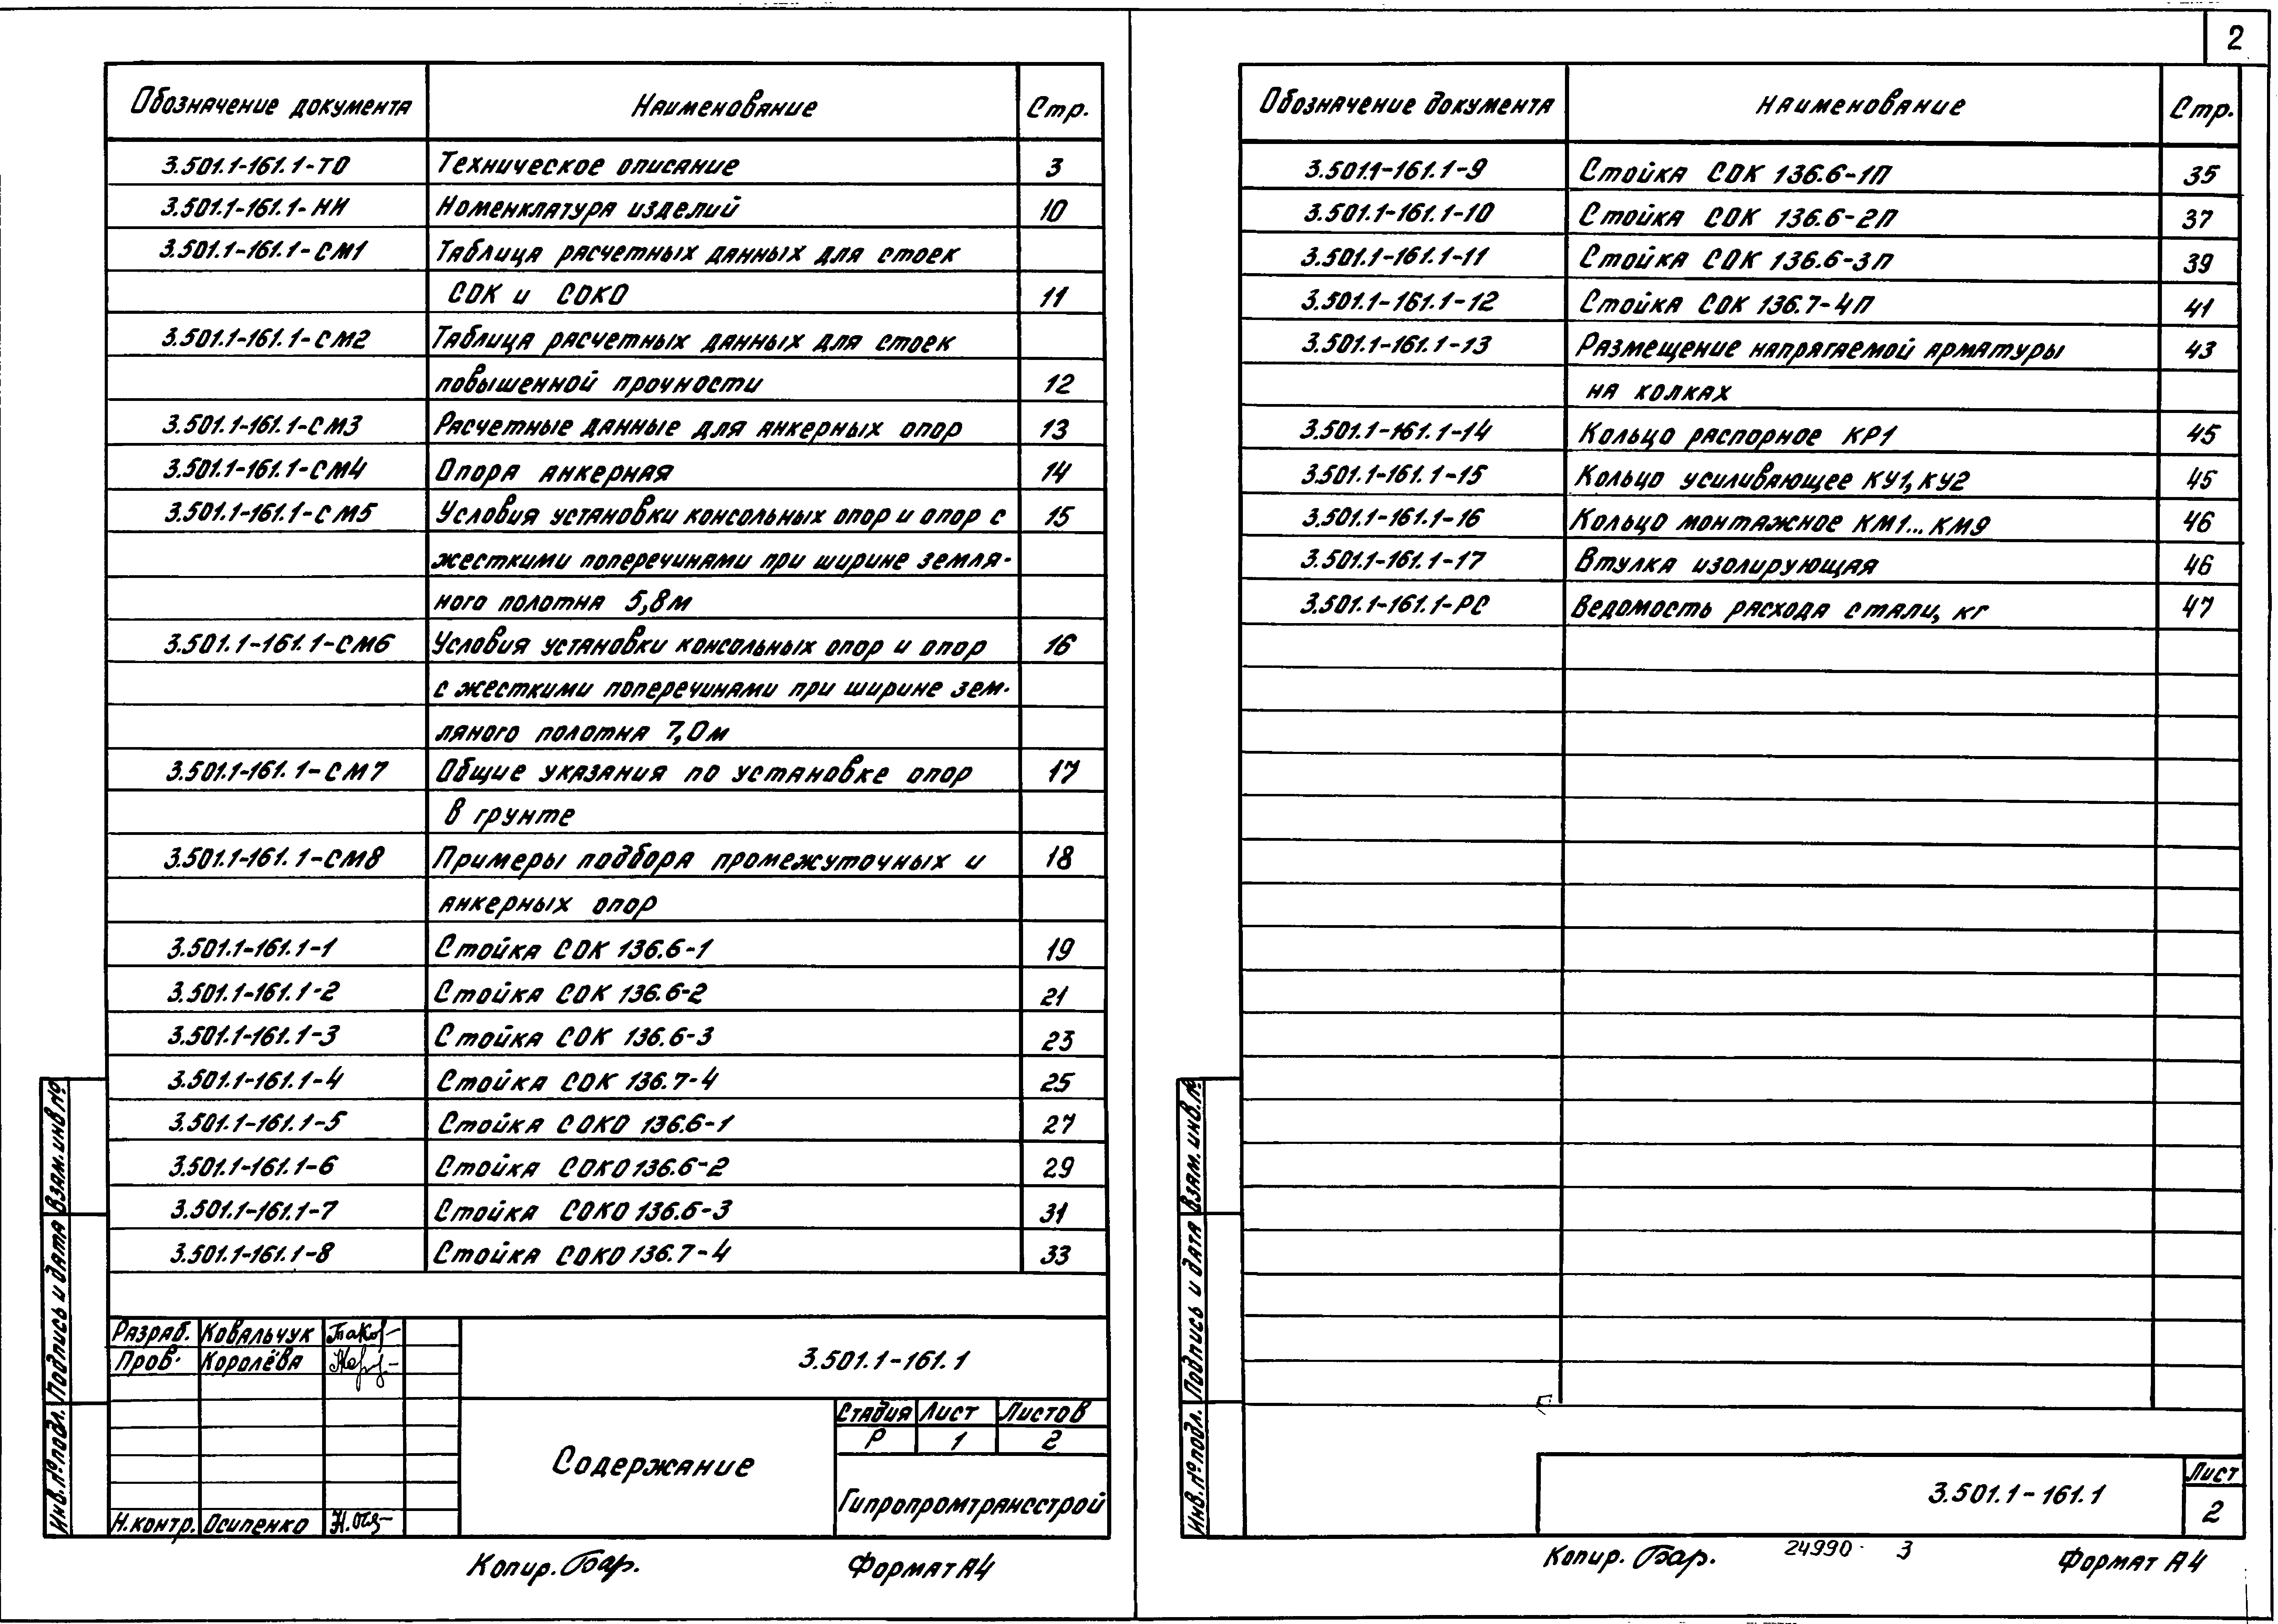 2
Обозначение документа Наименование Стр.
3.501.1-161.1-ТО Техническое описание 3
3.501.1-161.1-НИ Номенклатура изделий 10
3.501.1-161.1-СМ1 Таблица расчетных данных для стоек
СОК и СОКО 11
3.501.1-161.1-СМ2 Таблица расчетных данных для стоек
повышенной прочности 12
3.501.1-161.1-СМ3 Расчетные данные для анкерных опор 13
3.501.1-161.1-СМ4 Опора анкерная 14
3.501.1-161.1-СМ5 Условия установки консольных опор и опор с 15
жесткими поперечинами при ширине земля-
ного полотна 5,8м
3.501.1-161.1-СМ6 Условия установки консольных опор и опор 16
с жесткими поперечинами при ширине зем-
ляного полотна 7,0м
3.501.1-161.1-СМ7 Общие указания по установке опор 17
в грунте
3.501.1-161.1-СМ8 Примеры подбора промежуточных и 18
анкерных опор
3.501.1-161.1-1 Стойка СОК 136.6-1 19
3.501.1-161.1-2 Стойка СОК 136.6-2 21
3.501.1-161.1-3 Стойка СОК 136.6-3 23
3.501.1-161.1-4 Стойка СОК 136.7-4 25
3.501.1-161.1-5 Стойка СОКО 136.6-1 27
3.501.1-161.1-6 Стойка СОКО 136.6-2 29
3.501.1-161.1-7 Стойка СОКО 136.6-3 31
3.501.1-161.1-8 Стойка СОКО 136.7-4 33
Взам. инв №
Подпись и дата
Инв. № подл.
Разраб. Ковальчук
Пров. Королёва
Н.контр. Осипенко
3.501.1-161.1
Содержание
Стадия Лист Листов
Р 1 2
Гипропромтрансстрой
Копир. Бар. Формат А4
Обозначение документа Наименование Стр.
3.501.1-161.1-9 Стойка СОК 136.6-1П 35
3.501.1-161.1-10 Стойка СОК 136.6-2П 37
3.501.1-161.1-11 Стойка СОК 136.6-3П 39
3.501.1-161.1-12 Стойка СОК 136.7-4П 41
3.501.1-161.1-13 Размещение напрягаемой арматуры 43
на колках
3.501.1-161.1-14 Кольцо распорное КР1 45
3.501.1-161.1-15 Кольцо усиливающее КУ1, КУ2 45
3.501.1-161.1-16 Кольцо монтажное КМ1...КМ9 46
3.501.1-161.1-17 Втулка изолирующая 46
3.501.1-161.1-РС Ведомость расхода стали, кг 47
Взам. инв. №
Подпись и дата
Инв. № подл.
3.501.1-161.1
Лист
2
Копир. Бар. 24990 3 Формат А4